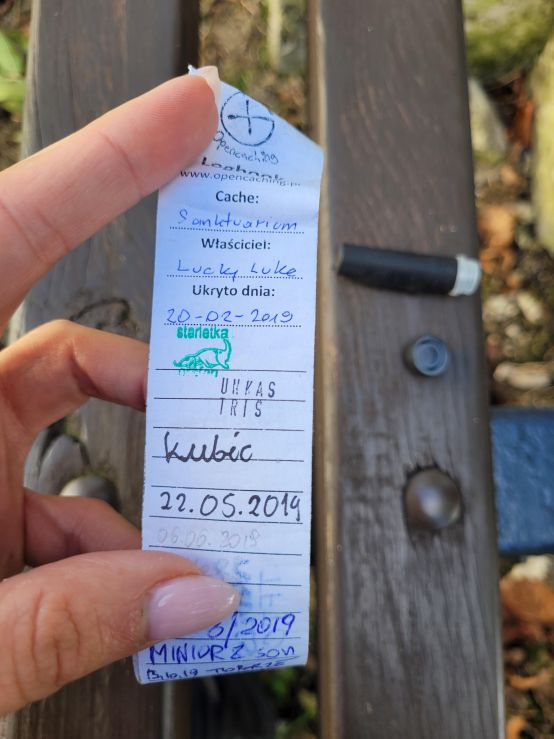 Opencaching
Logbook
www.opencaching.pl
Cache:
Sanktuarium
Właściciel:
Lucky Luke
Ukryto dnia:
20-02-2019
stanletka
UHKAS
IRIS
Kubic
22.05.2019
06.06.2019
6/2019
MINIUR Z SON